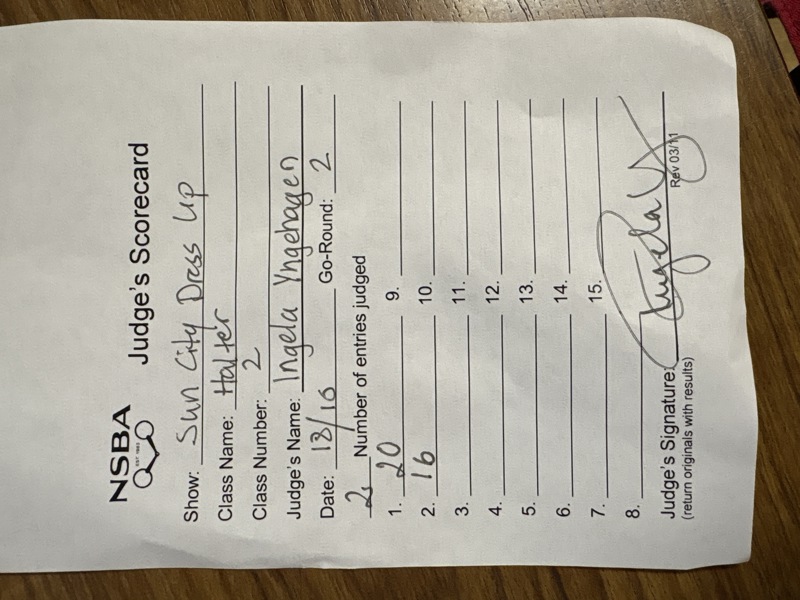 NSBA
EST. 1983
Judge's Scorecard
Show: Sun City Dress Up
Class Name: Halter
Class Number: 2
Judge's Name: Ingela Yngehagen
Date: 13/10 Go-Round: 2
2 Number of entries judged
1. 20 9.
2. 16 10.
3. 11.
4. 12.
5. 13.
6. 14.
7. 15.
8.
Judge's Signature:
(return originals with results) Rev 03/11